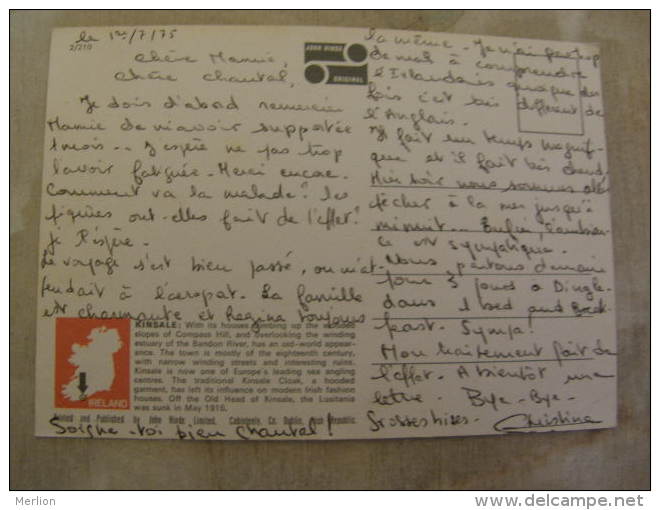 le 1er/7/75
2/210
Chère Mamie,
Chère Chantal,
JOHN HINDE
ORIGINAL
Je dois d'abord remercier
Mamie de m'avoir supportée
1 mois... J'espère ne pas trop
l'avoir fatiguée. Merci encore.
Comment va la malade? les
piqûres ont-elles fait de l'effet?
je l'espère.
Le voyage s'est bien passé, on m'at-
tendait à l'aeroport. La famille
est charmante et Regina toujours
la même. Je n'ai pas trop
de mal à comprendre
l'Irlandais quoique des
fois c'est très différent de
l'Anglais.
Il fait un temps magnifi-
que et il fait très chaud.
Hier soir nous sommes allés
pêcher à la mer jusqu'à
minuit... Enfin, l'ambian-
ce est sympathique.
Nous partons demain
pour 3 jours à Dingle
dans 1 bed and Break
feast. Sympa!
Mon traitement fait de
l'effet. A bientôt une
lettre. Bye-Bye.
Grosses bises. Christine
KINSALE: With its houses climbing up the wooded
slopes of Compass Hill, and overlooking the winding
estuary of the Bandon River, has an old-world appear-
ance. The town is mostly of the eighteenth century,
with narrow winding streets and interesting ruins.
Kinsale is now one of Europe's leading sea angling
centres. The traditional Kinsale Cloak, a hooded
garment, has left its influence on modern Irish fashion
houses. Off the Old Head of Kinsale, the Lusitania
was sunk in May 1915.
IRELAND
Printed and Published by John Hinde Limited, Cabinteely, Co. Dublin, Irish Republic.
Soigne-toi bien Chantal!
Merlion
http://www.delcampe.net